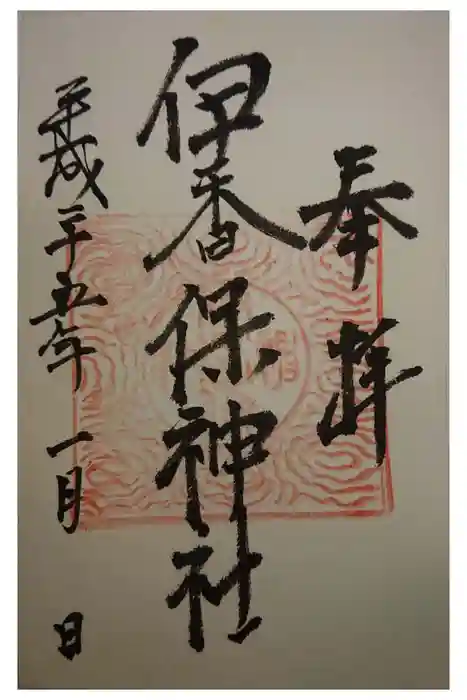 奉拝
伊香保神社
平成二十五年 一月 日